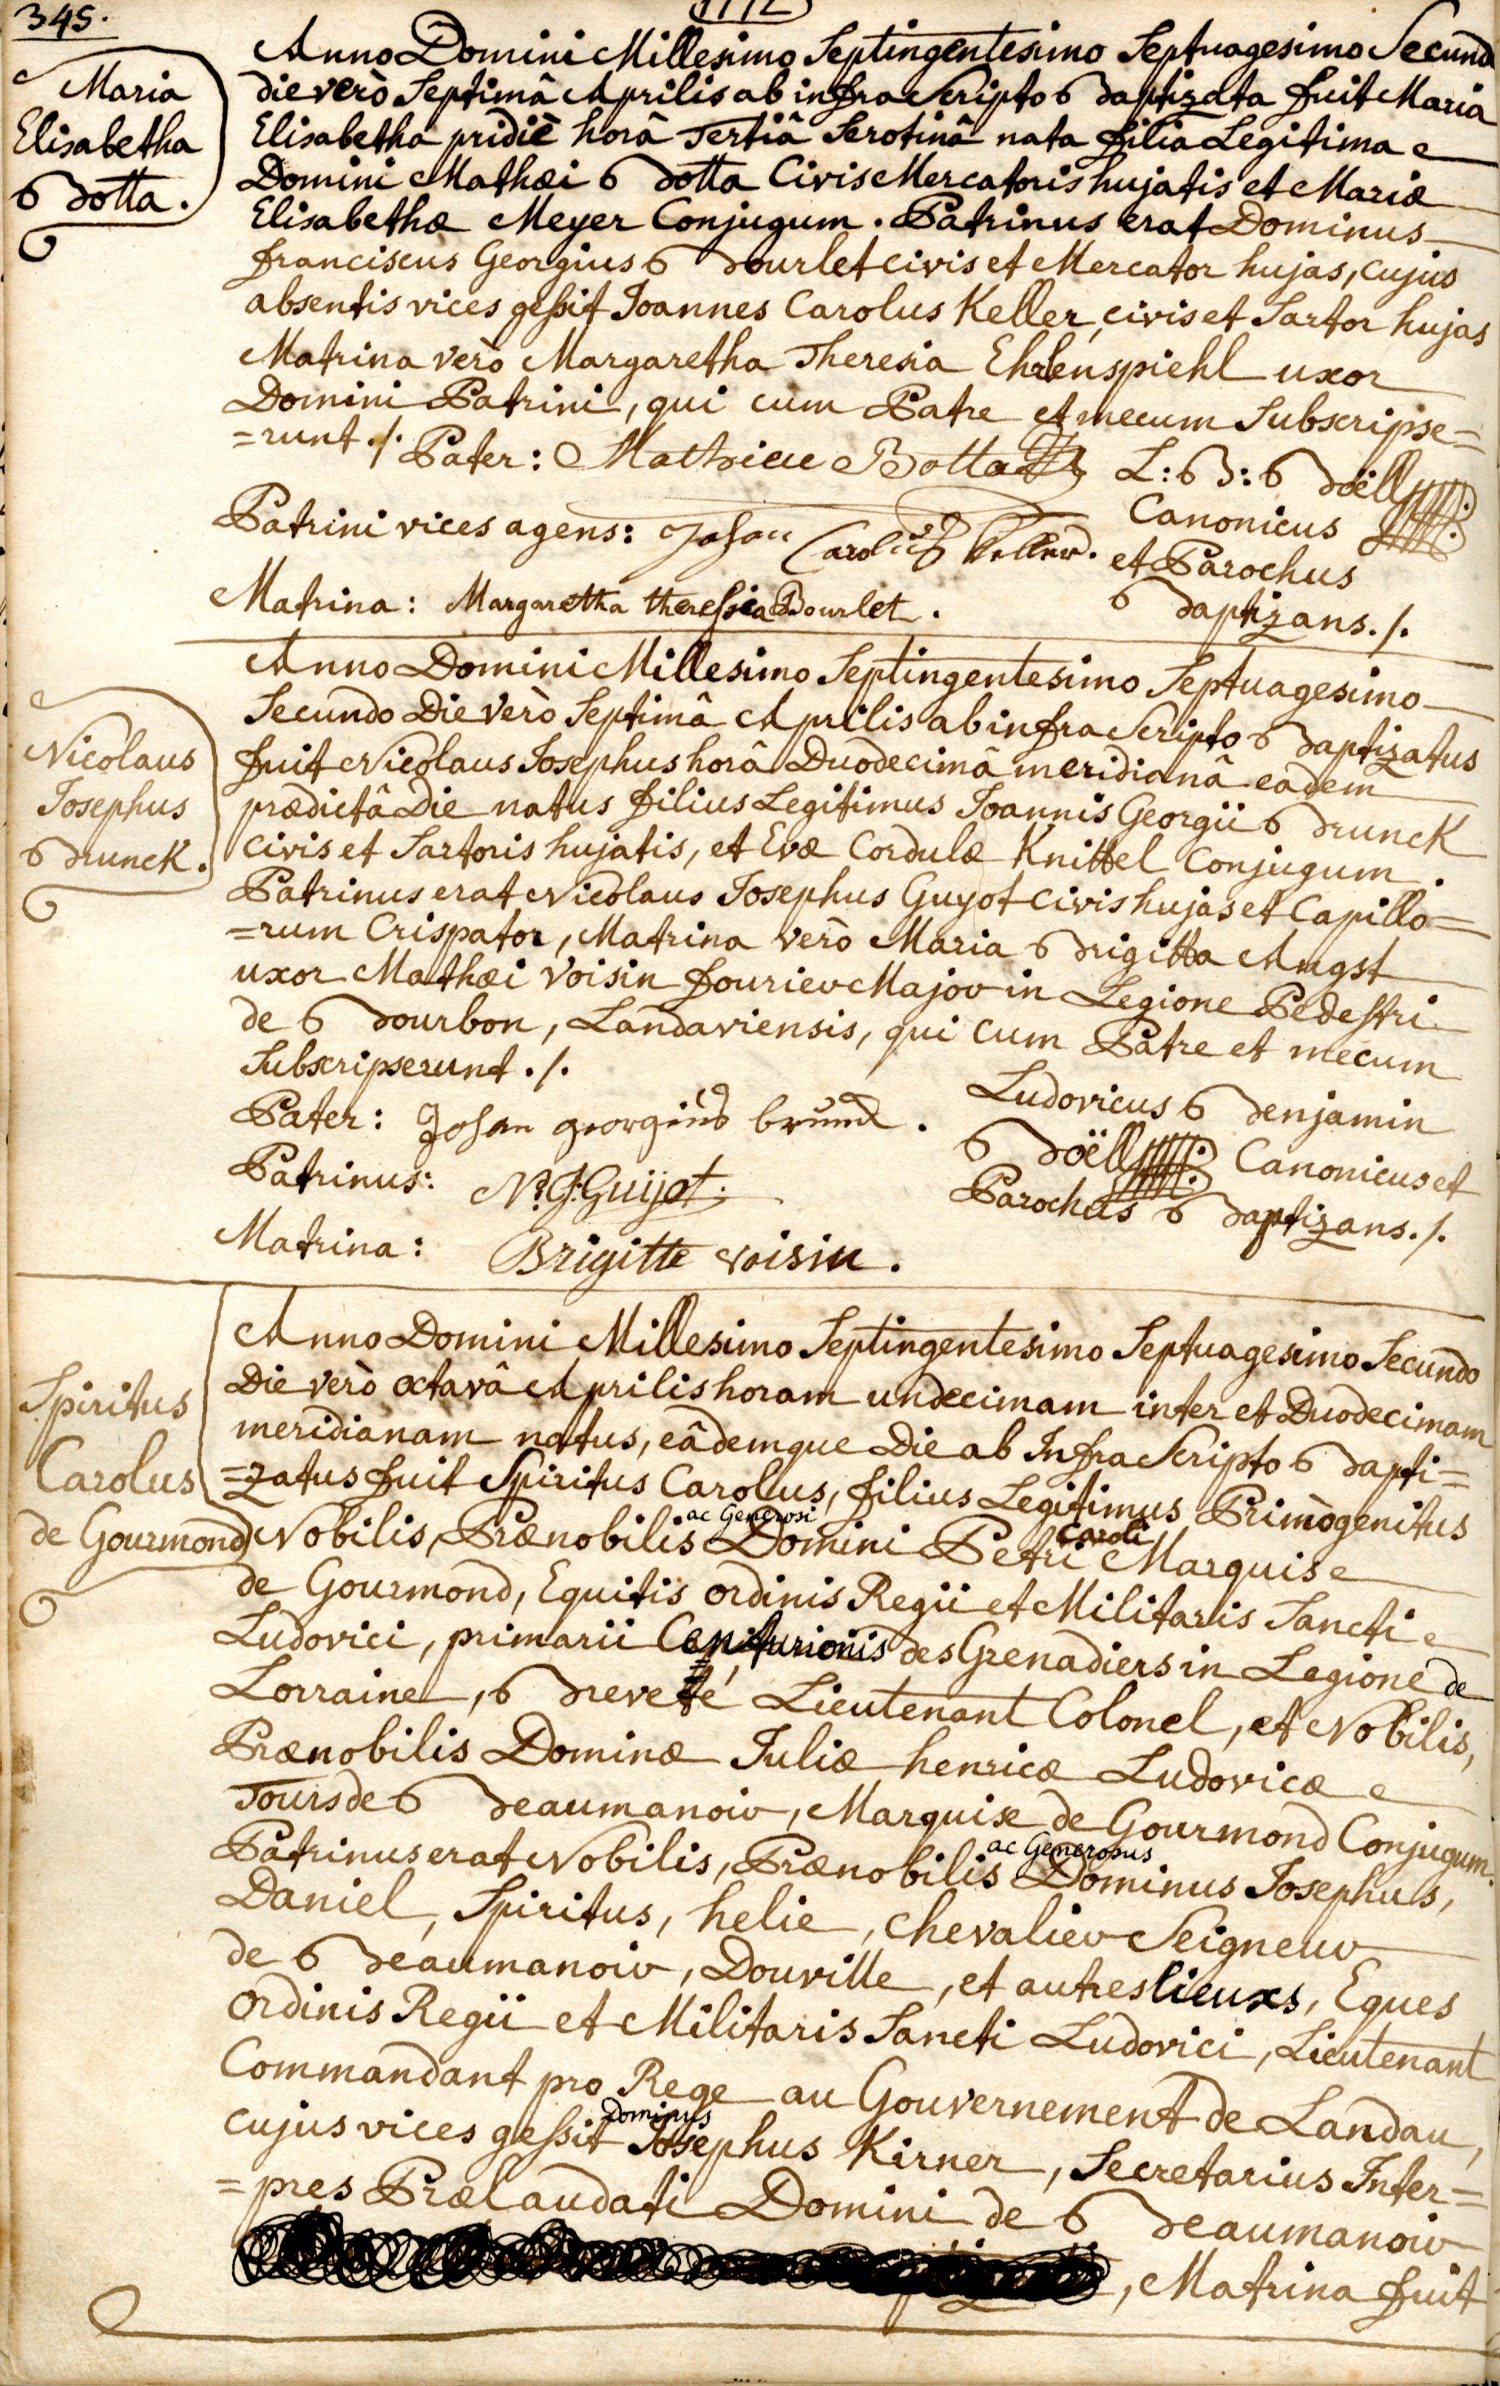 345.
1772
Maria
Elisabetha
Botta.
Anno Domini Millesimo Septingentesimo Septuagesimo Secund
die verò Septimâ Aprilis ab infra Scripto Baptizata fuit Maria
Elisabetha pridiè horâ Tertiâ Serotinâ nata filia Legitima
Domini Mathæi Botta Civis Mercatoris hujatis et Mariæ
Elisabethæ Meyer Conjugum. Patrinus erat Dominus
franciscus Georgius Bourlet civis et Mercator hujas, cujus
absentis vices gessit Joannes Carolus Keller, civis et Sartor hujas
Matrina verò Margaretha Theresia Ehrlenspiehl uxor
Domini Patrini, qui cum Patre et mecum Subscripse=
=runt ./.
Pater: Mathieu Botta
L: B: Boëll
Canonicus
et Parochus
Baptizans ./.
Patrini vices agens: Johan Carolus Keller.
Matrina: Margaretha theressia Bourlet.
Nicolaus
Josephus
Brunck.
Anno Domini Millesimo Septingentesimo Septuagesimo
Secundo Die verò Septimâ Aprilis ab infra Scripto Baptizatus
fuit Nicolaus Josephus horâ Duodecimâ meridianâ eadem
prædictâ Die natus filius Legitimus Joannis Georgii Brunck
civis et Sartoris hujatis, et Evæ Cordulæ Knittel Conjugum.
Patrinus erat Nicolaus Josephus Guyot civis hujas et Capillo=
=rum Crispator, Matrina verò Maria Brigitta Angst
uxor Mathæi Voisin fourier Major in Legione Pedestri
de Bourbon, Landaviensis, qui cum Patre et mecum
Subscripserunt ./.
Pater: Johan georgius brunck.
Patrinus: N. J. Guijot.
Matrina: Brigitte voisin.
Ludovicus Benjamin
Boëll Canonicus et
Parochus Baptizans ./.
Spiritus
Carolus
de Gourmond
Anno Domini Millesimo Septingentesimo Septuagesimo Secundo
Die verò octavâ Aprilis horam undecimam inter et Duodecimam
meridianam natus, eâdemque Die ab Infra Scripto Bapti=
=zatus fuit Spiritus Carolus, filius Legitimus Primògenitus
Nobilis, Prænobilis ac Generosi Domini Petri Caroli Marquis
de Gourmond, Equitis ordinis Regii et Militaris Sancti
Ludovici, primarii Centurionis des Grenadiers in Legione de
Lorraine, Breveté Lieutenant Colonel, et Nobilis,
Prænobilis Dominæ Juliæ henricæ Ludovicæ
Tours de Beaumanoir, Marquise de Gourmond Conjugum.
Patrinus erat Nobilis, Prænobilis ac Generosus Dominus Josephus,
Daniel, Spiritus, helie, chevalier Seigneur
de Beaumanoir, Douville, et autres lieuxs, Eques
ordinis Regii et Militaris Sancti Ludovici, Lieutenant
Commandant pro Rege au Gouvernement de Landau,
cujus vices gessit Dominus Josephus Kirner, Secretarius Inter=
=pres Prælaudati Domini de Beaumanoir
, Matrina fuit